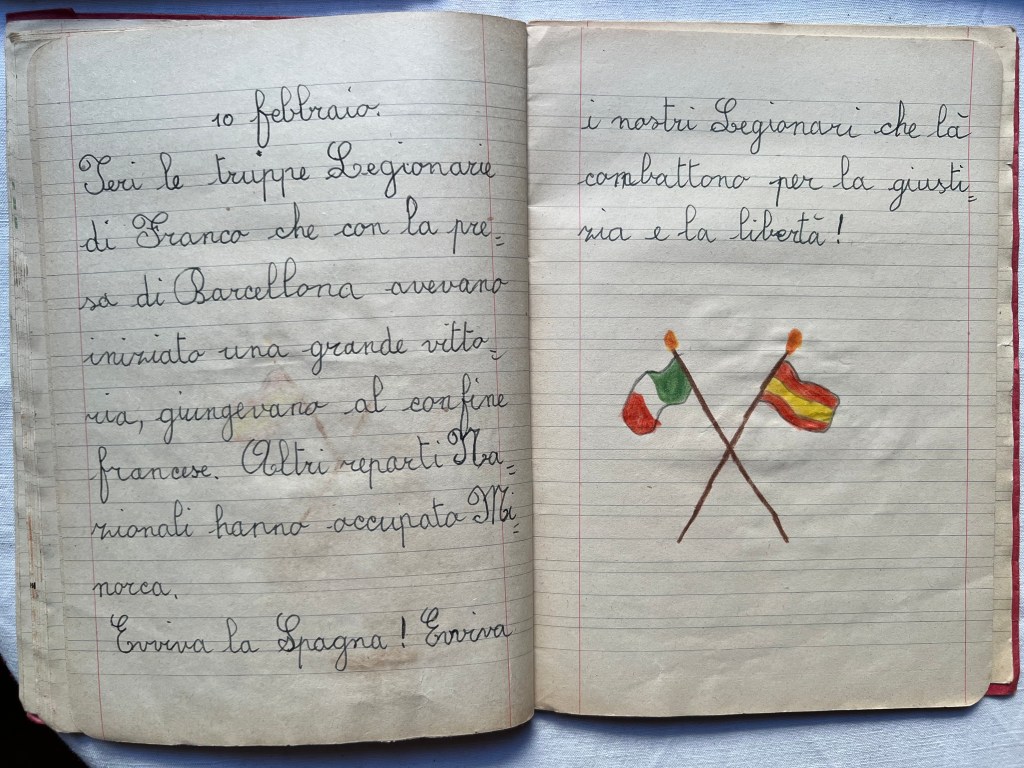 10 febbraio.
Ieri le truppe Legionarie
di Franco che con la pre=
sa di Barcellona avevano
iniziato una grande vitto=
ria, giungevano al confine
francese. Altri reparti Na=
zionali hanno occupato Mi=
norca.
Evviva la Spagna! Evviva
i nostri Legionari che là
combattono per la giusti=
zia e la libertà!